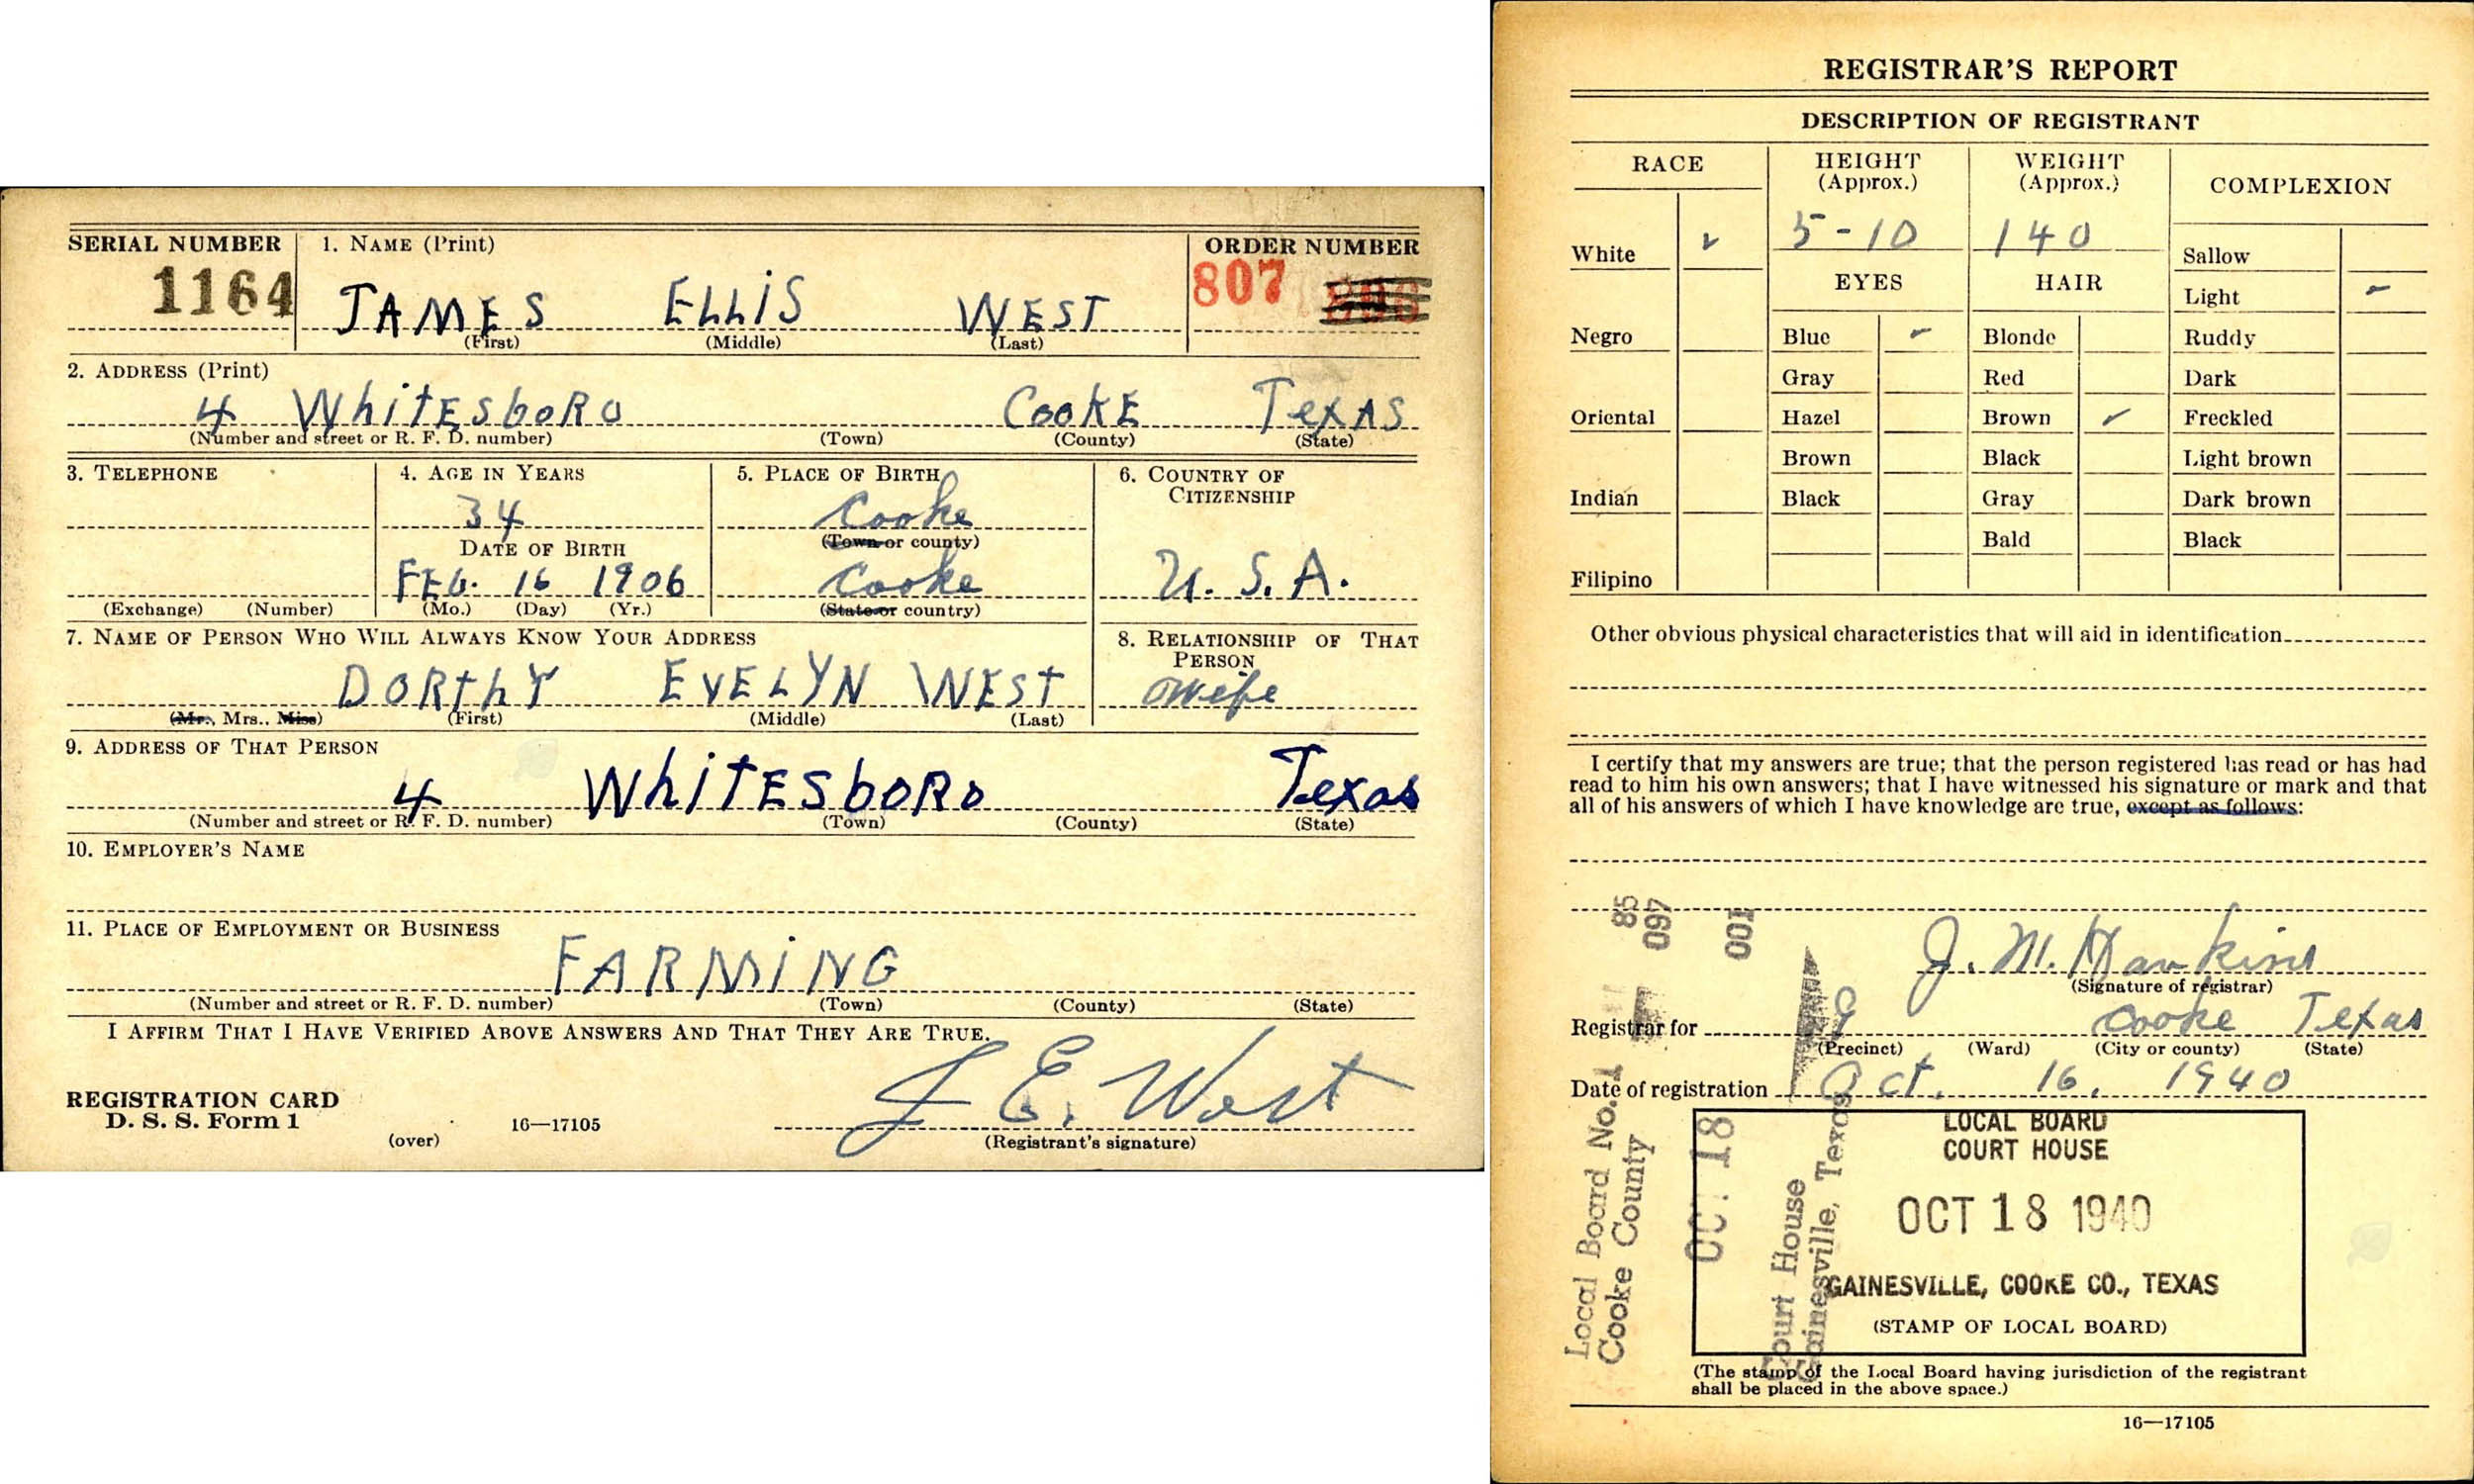 SERIAL NUMBER 1. NAME (Print) ORDER NUMBER
1164 JAMES ELLIS WEST 807
(First) (Middle) (Last)
2. ADDRESS (Print)
4 WhitesboRo COOKE TexAS
(Number and street or R. F. D. number) (Town) (County) (State)
3. TELEPHONE 4. AGE IN YEARS 5. PLACE OF BIRTH 6. COUNTRY OF
CITIZENSHIP
34 Cooke
DATE OF BIRTH (Town or county)
FEb. 16 1906 Cooke U. S. A.
(Exchange) (Number) (Mo.) (Day) (Yr.) (State or country)
7. NAME OF PERSON WHO WILL ALWAYS KNOW YOUR ADDRESS 8. RELATIONSHIP OF THAT
PERSON
DORthY EVELYN WEST wife
(Mr., Mrs., Miss) (First) (Middle) (Last)
9. ADDRESS OF THAT PERSON
4 WhiTESboRo Texas
(Number and street or R. F. D. number) (Town) (County) (State)
10. EMPLOYER'S NAME
11. PLACE OF EMPLOYMENT OR BUSINESS
FARMiNG
(Number and street or R. F. D. number) (Town) (County) (State)
I AFFIRM THAT I HAVE VERIFIED ABOVE ANSWERS AND THAT THEY ARE TRUE.
J E. West
REGISTRATION CARD
D. S. S. Form 1 16—17105
(over) (Registrant's signature)
REGISTRAR'S REPORT
DESCRIPTION OF REGISTRANT
RACE HEIGHT WEIGHT COMPLEXION
(Approx.) (Approx.)
White ✓ 5-10 140 Sallow
EYES HAIR Light ✓
Negro Blue ✓ Blonde Ruddy
Gray Red Dark
Oriental Hazel Brown ✓ Freckled
Brown Black Light brown
Indian Black Gray Dark brown
Bald Black
Filipino
Other obvious physical characteristics that will aid in identification
I certify that my answers are true; that the person registered has read or has had
read to him his own answers; that I have witnessed his signature or mark and that
all of his answers of which I have knowledge are true, except as follows:
85
097
001
J. M. Hawkins
(Signature of registrar)
Registrar for Cooke Texas
(Precinct) (Ward) (City or county) (State)
Date of registration Oct. 16, 1940
Local Board No. 1
Cooke County
OCT 18
Court House
Gainesville, Texas
LOCAL BOARD
COURT HOUSE
OCT 18 1940
GAINESVILLE, COOKE CO., TEXAS
(STAMP OF LOCAL BOARD)
(The stamp of the Local Board having jurisdiction of the registrant
shall be placed in the above space.)
16—17105